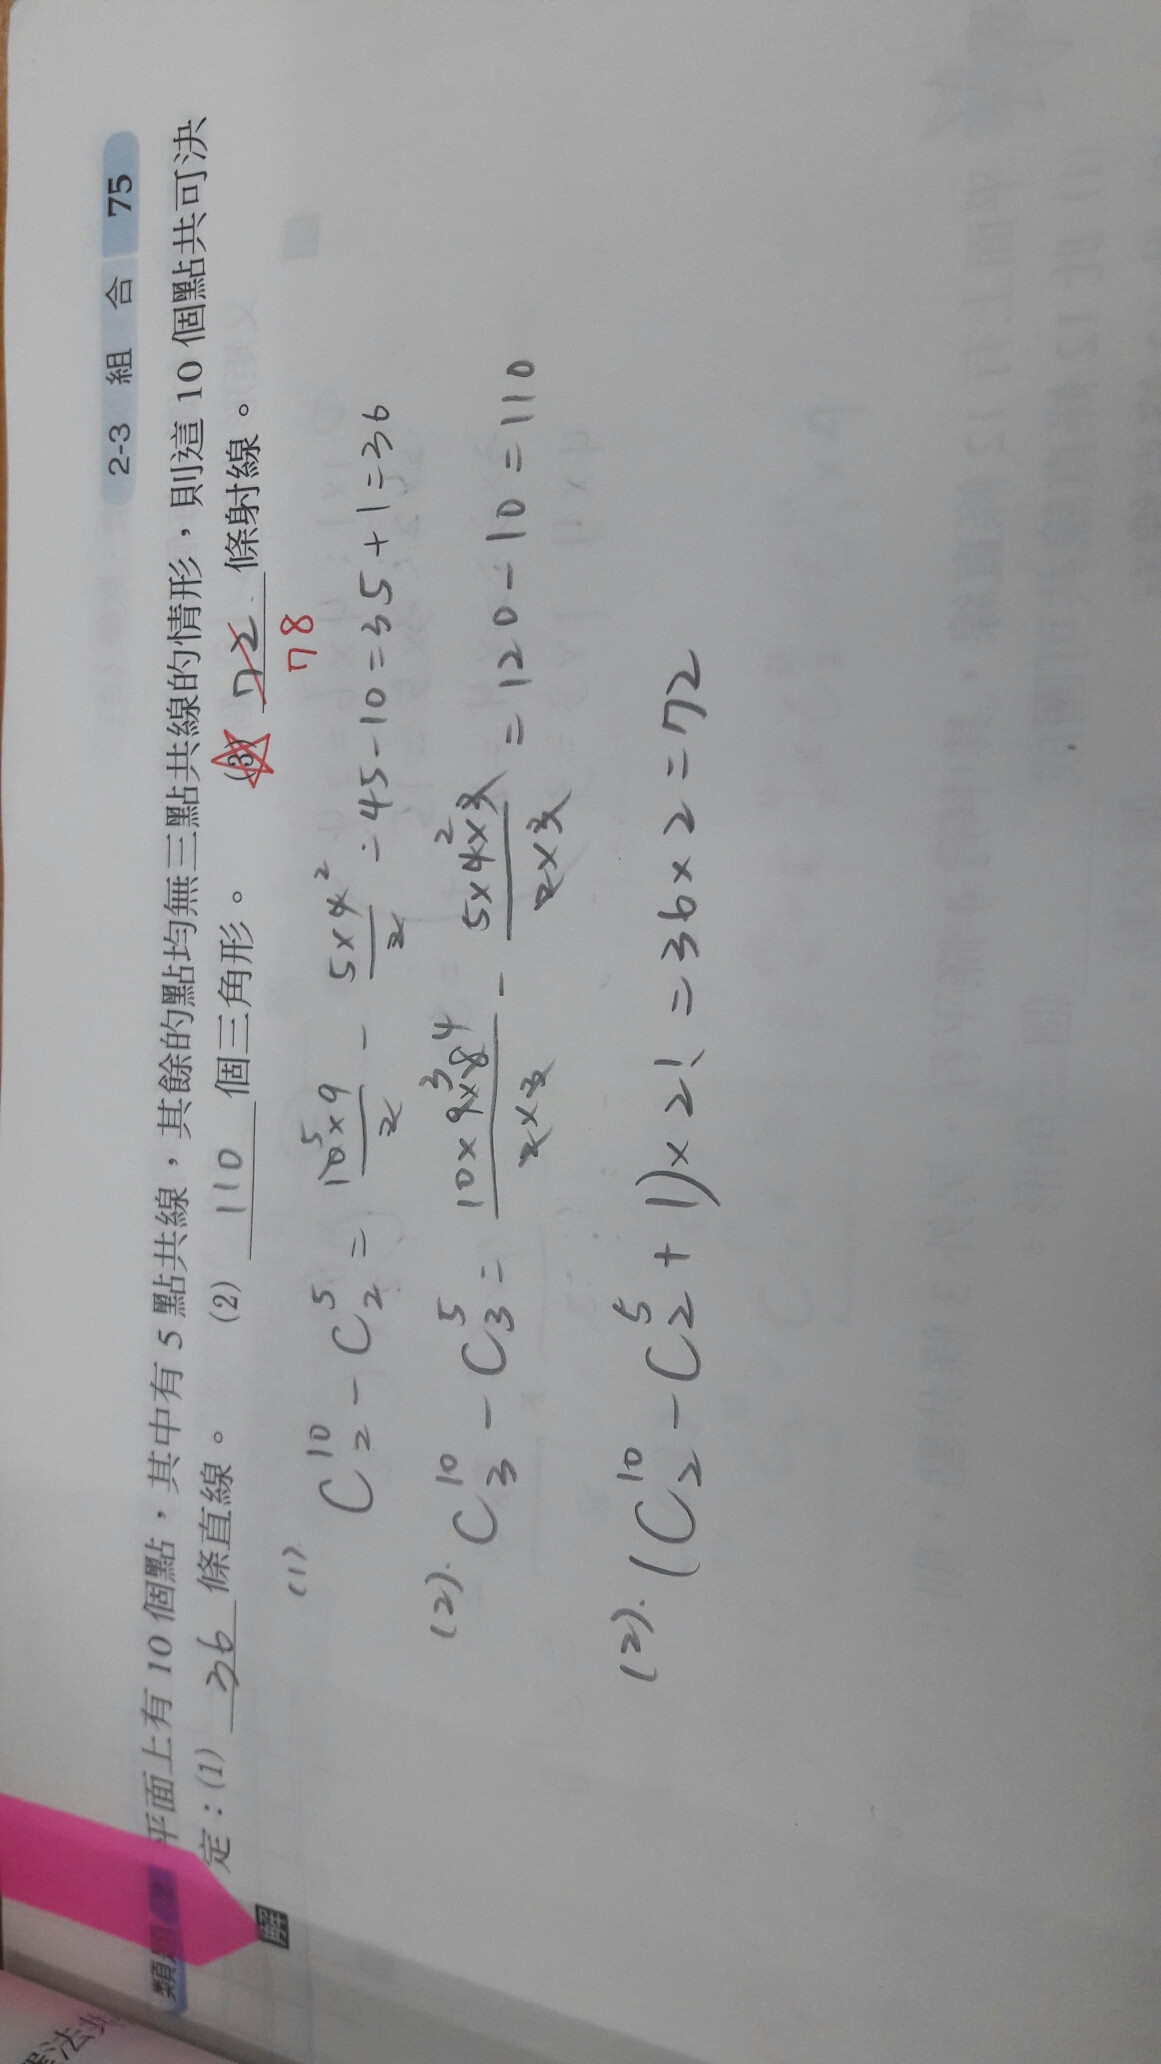 2-3 組 合 75
類題 平面上有 10 個點，其中有 5 點共線，其餘的點均無三點共線的情形，則這 10 個點共可決
定：(1) 36 條直線。 (2) 110 個三角形。 (3) 72 條射線。
78
解
(1) C¹⁰₂ - C⁵₂ = 10⁵×9/2 - 5×4²/2 = 45-10=35+1=36
(2). C¹⁰₃ - C⁵₃ = 10×9³×8⁴/2×3 - 5×4²×3/2×3 = 120-10=110
(2). (C¹⁰₂ - C⁵₂ + 1)×2! = 36×2=72